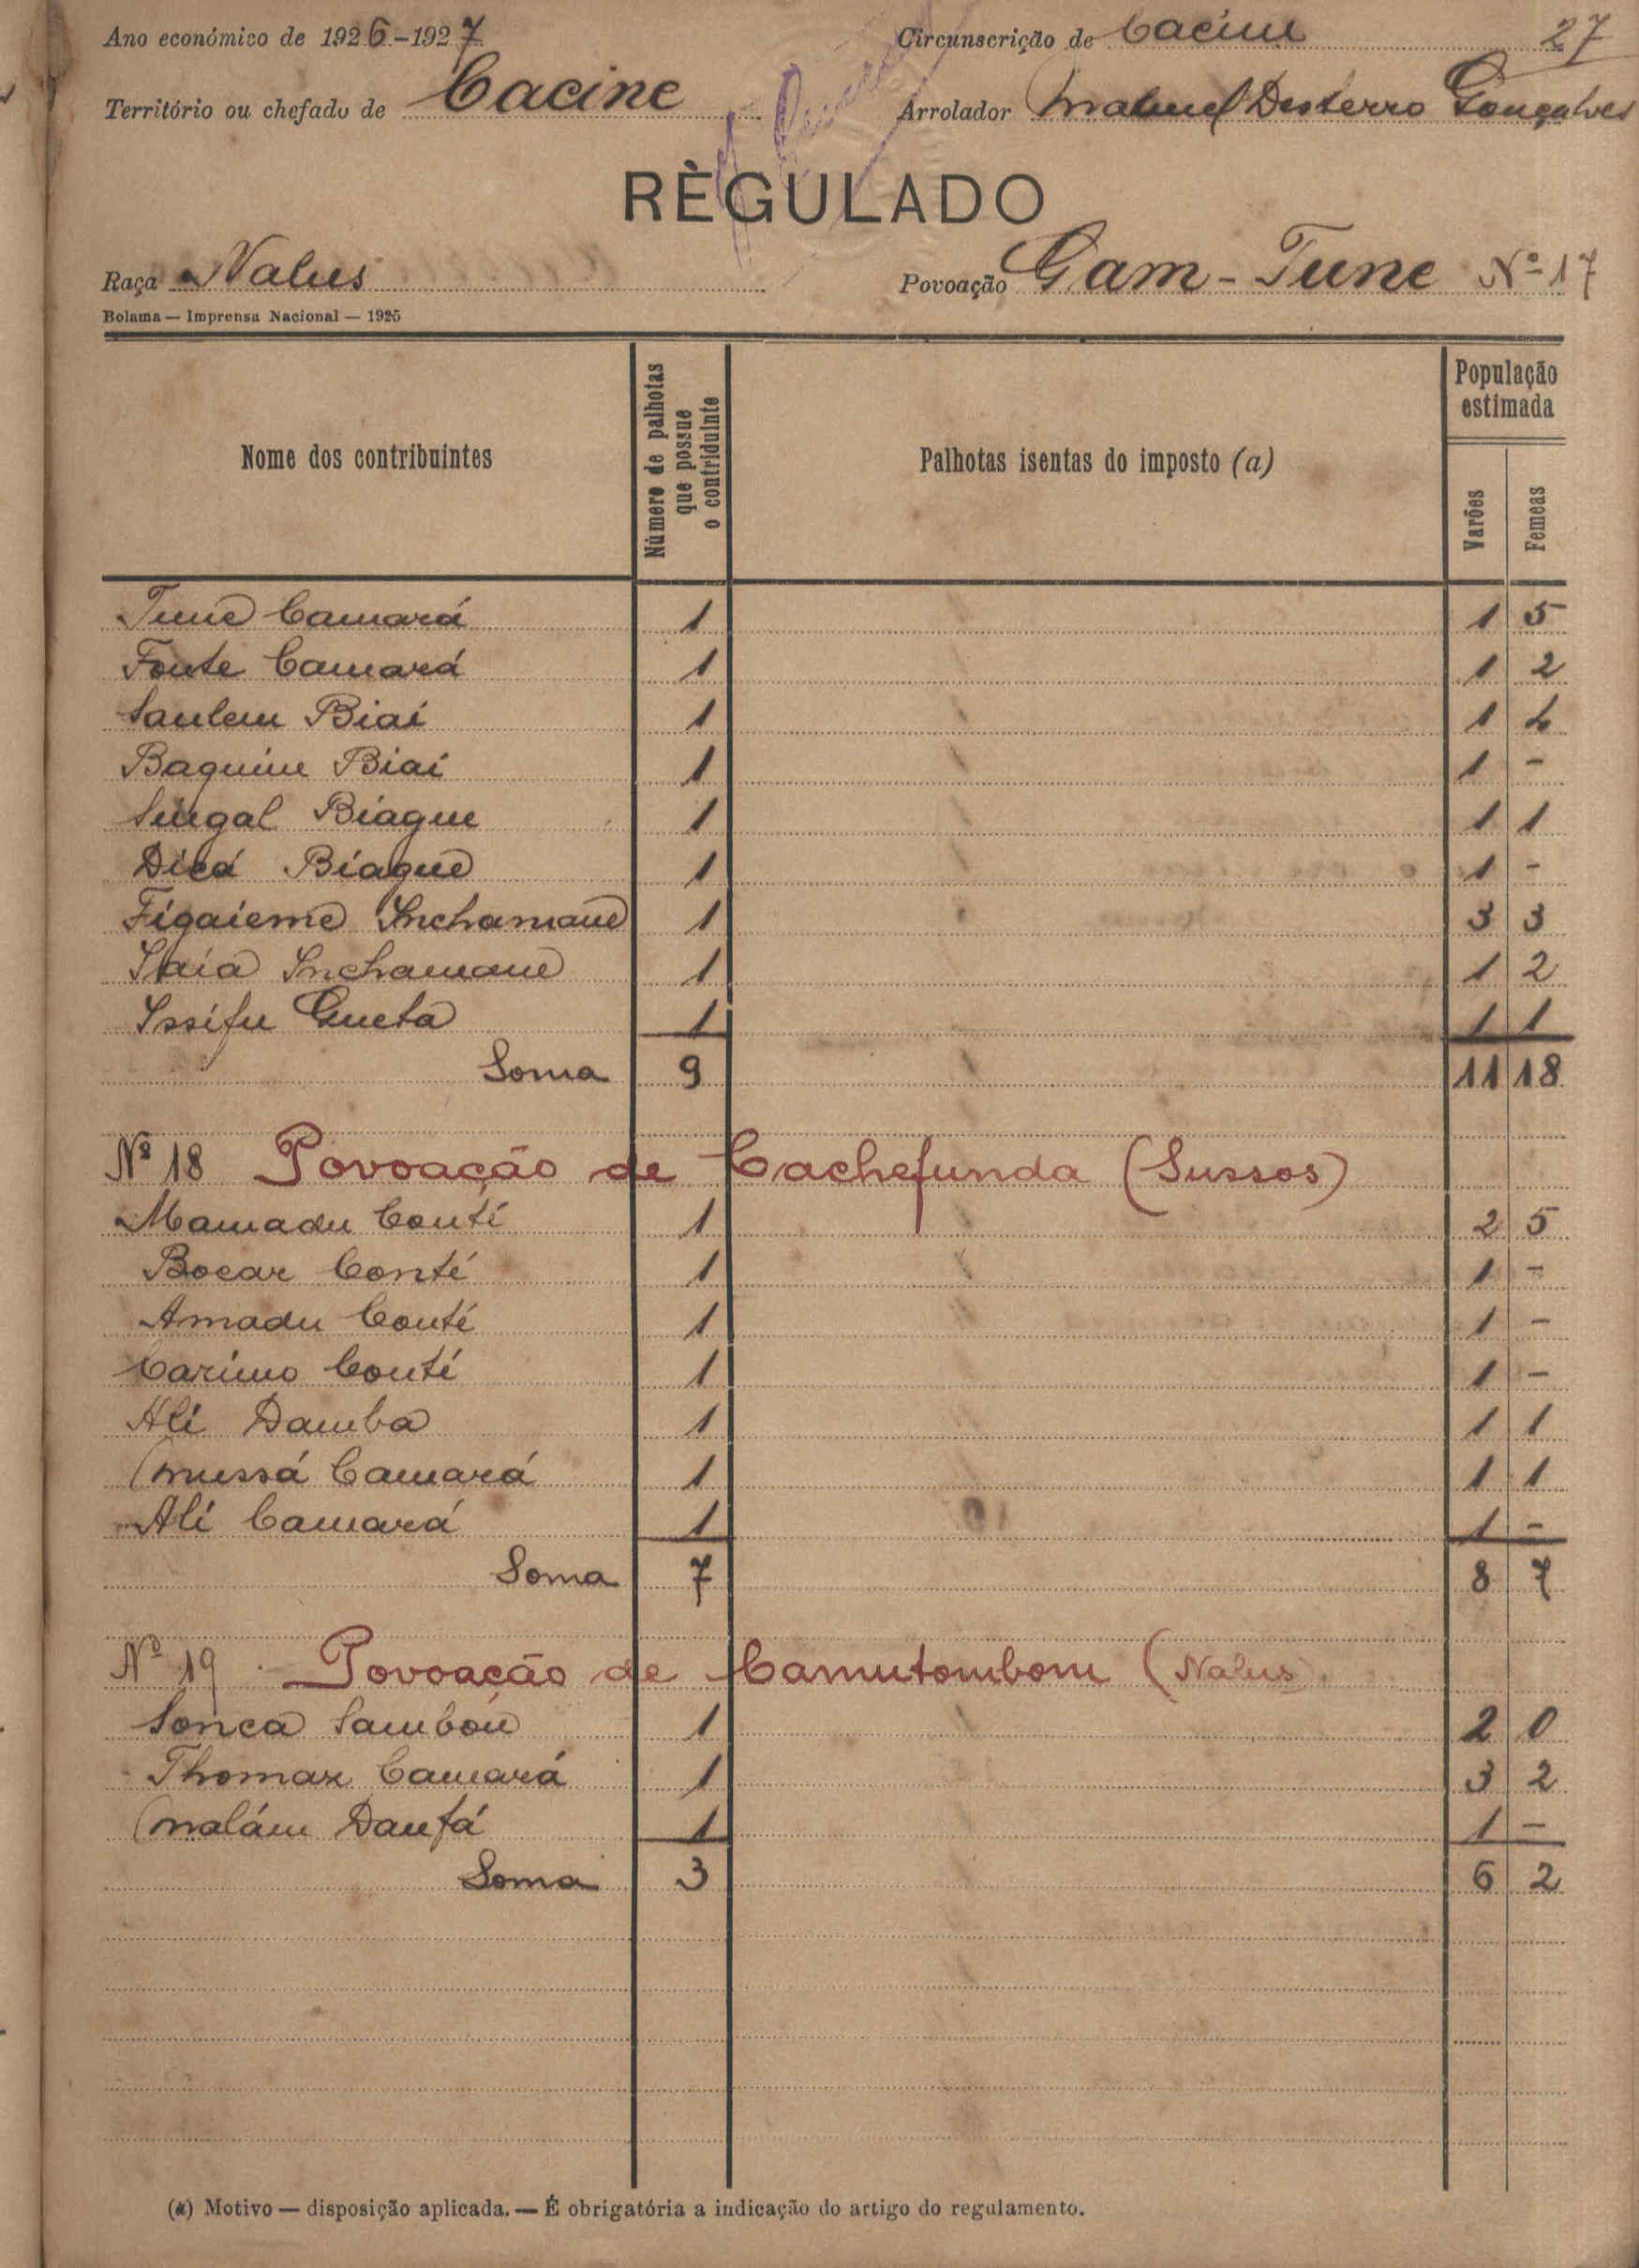 Ano económico de 1926-1927 Circunscrição de Cacine 27
Território ou chefado de Cacine Arrolador Manuel Desterro Gonçalves
RÈGULADO
Raça Nalus Povoação Gam-Tune Nº 17
Bolama — Imprensa Nacional — 1925
Nome dos contribuintes Número de palhotas que possue o contriduinte Palhotas isentas do imposto (a) População estimada Varões Femeas
Tune Camará 1 1 5
Fonte Camará 1 1 2
Sanlem Biai 1 1 4
Baquine Biai 1 1 -
Biague 1 1 1
Dicá Biague 1 1 -
Figaieme Inchamane 1 3 3
Inchamane 1 1 2
Issifu Gueta 1 1 1
Soma 9 11 18
Nº 18 Povoação de Cachefunda (Sussos)
Mamadu Conté 1 2 5
Bocar Conté 1 1 -
Amadu Conté 1 1 -
Carimo Conté 1 1 -
Ali Damba 1 1 1
Mussá Camará 1 1 1
Ali Camará 1 1 -
Soma 7 8 7
Nº 19 Povoação de Camutombom (Nalus)
Sonca Sambóu 1 2 0
Thomaz Camará 1 3 2
Malám Danfá 1 1 -
Soma 3 6 2
(a) Motivo — disposição aplicada. — É obrigatória a indicação do artigo do regulamento.